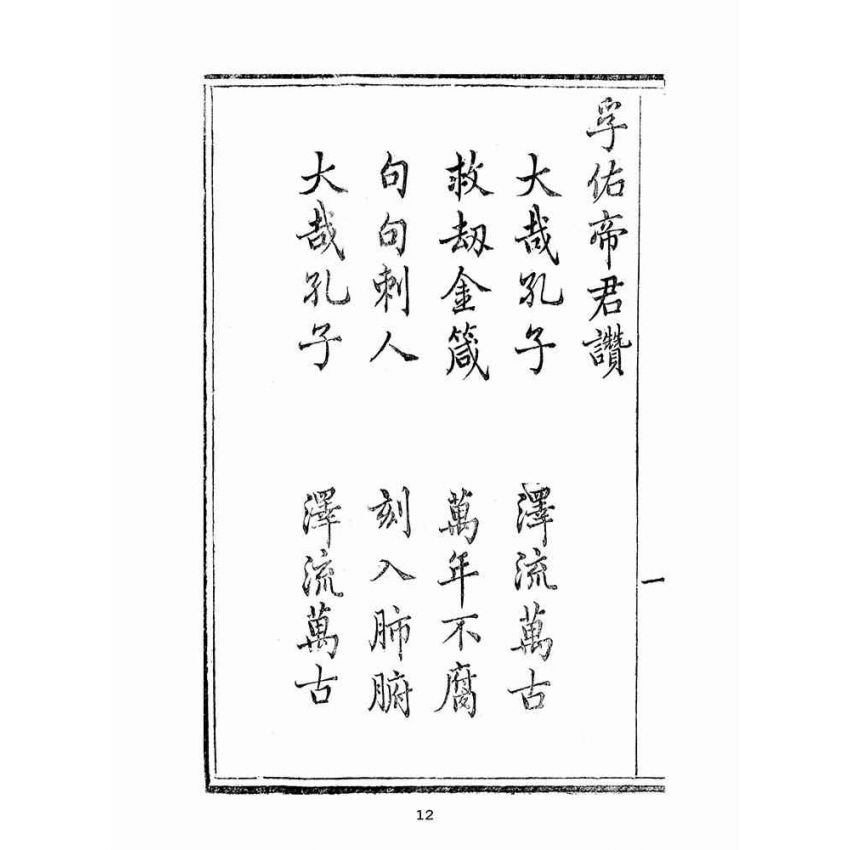 孚佑帝君讚
大哉孔子 澤流萬古
救劫金箴 萬年不腐
句句刺人 刻入肺腑
大哉孔子 澤流萬古
一
12